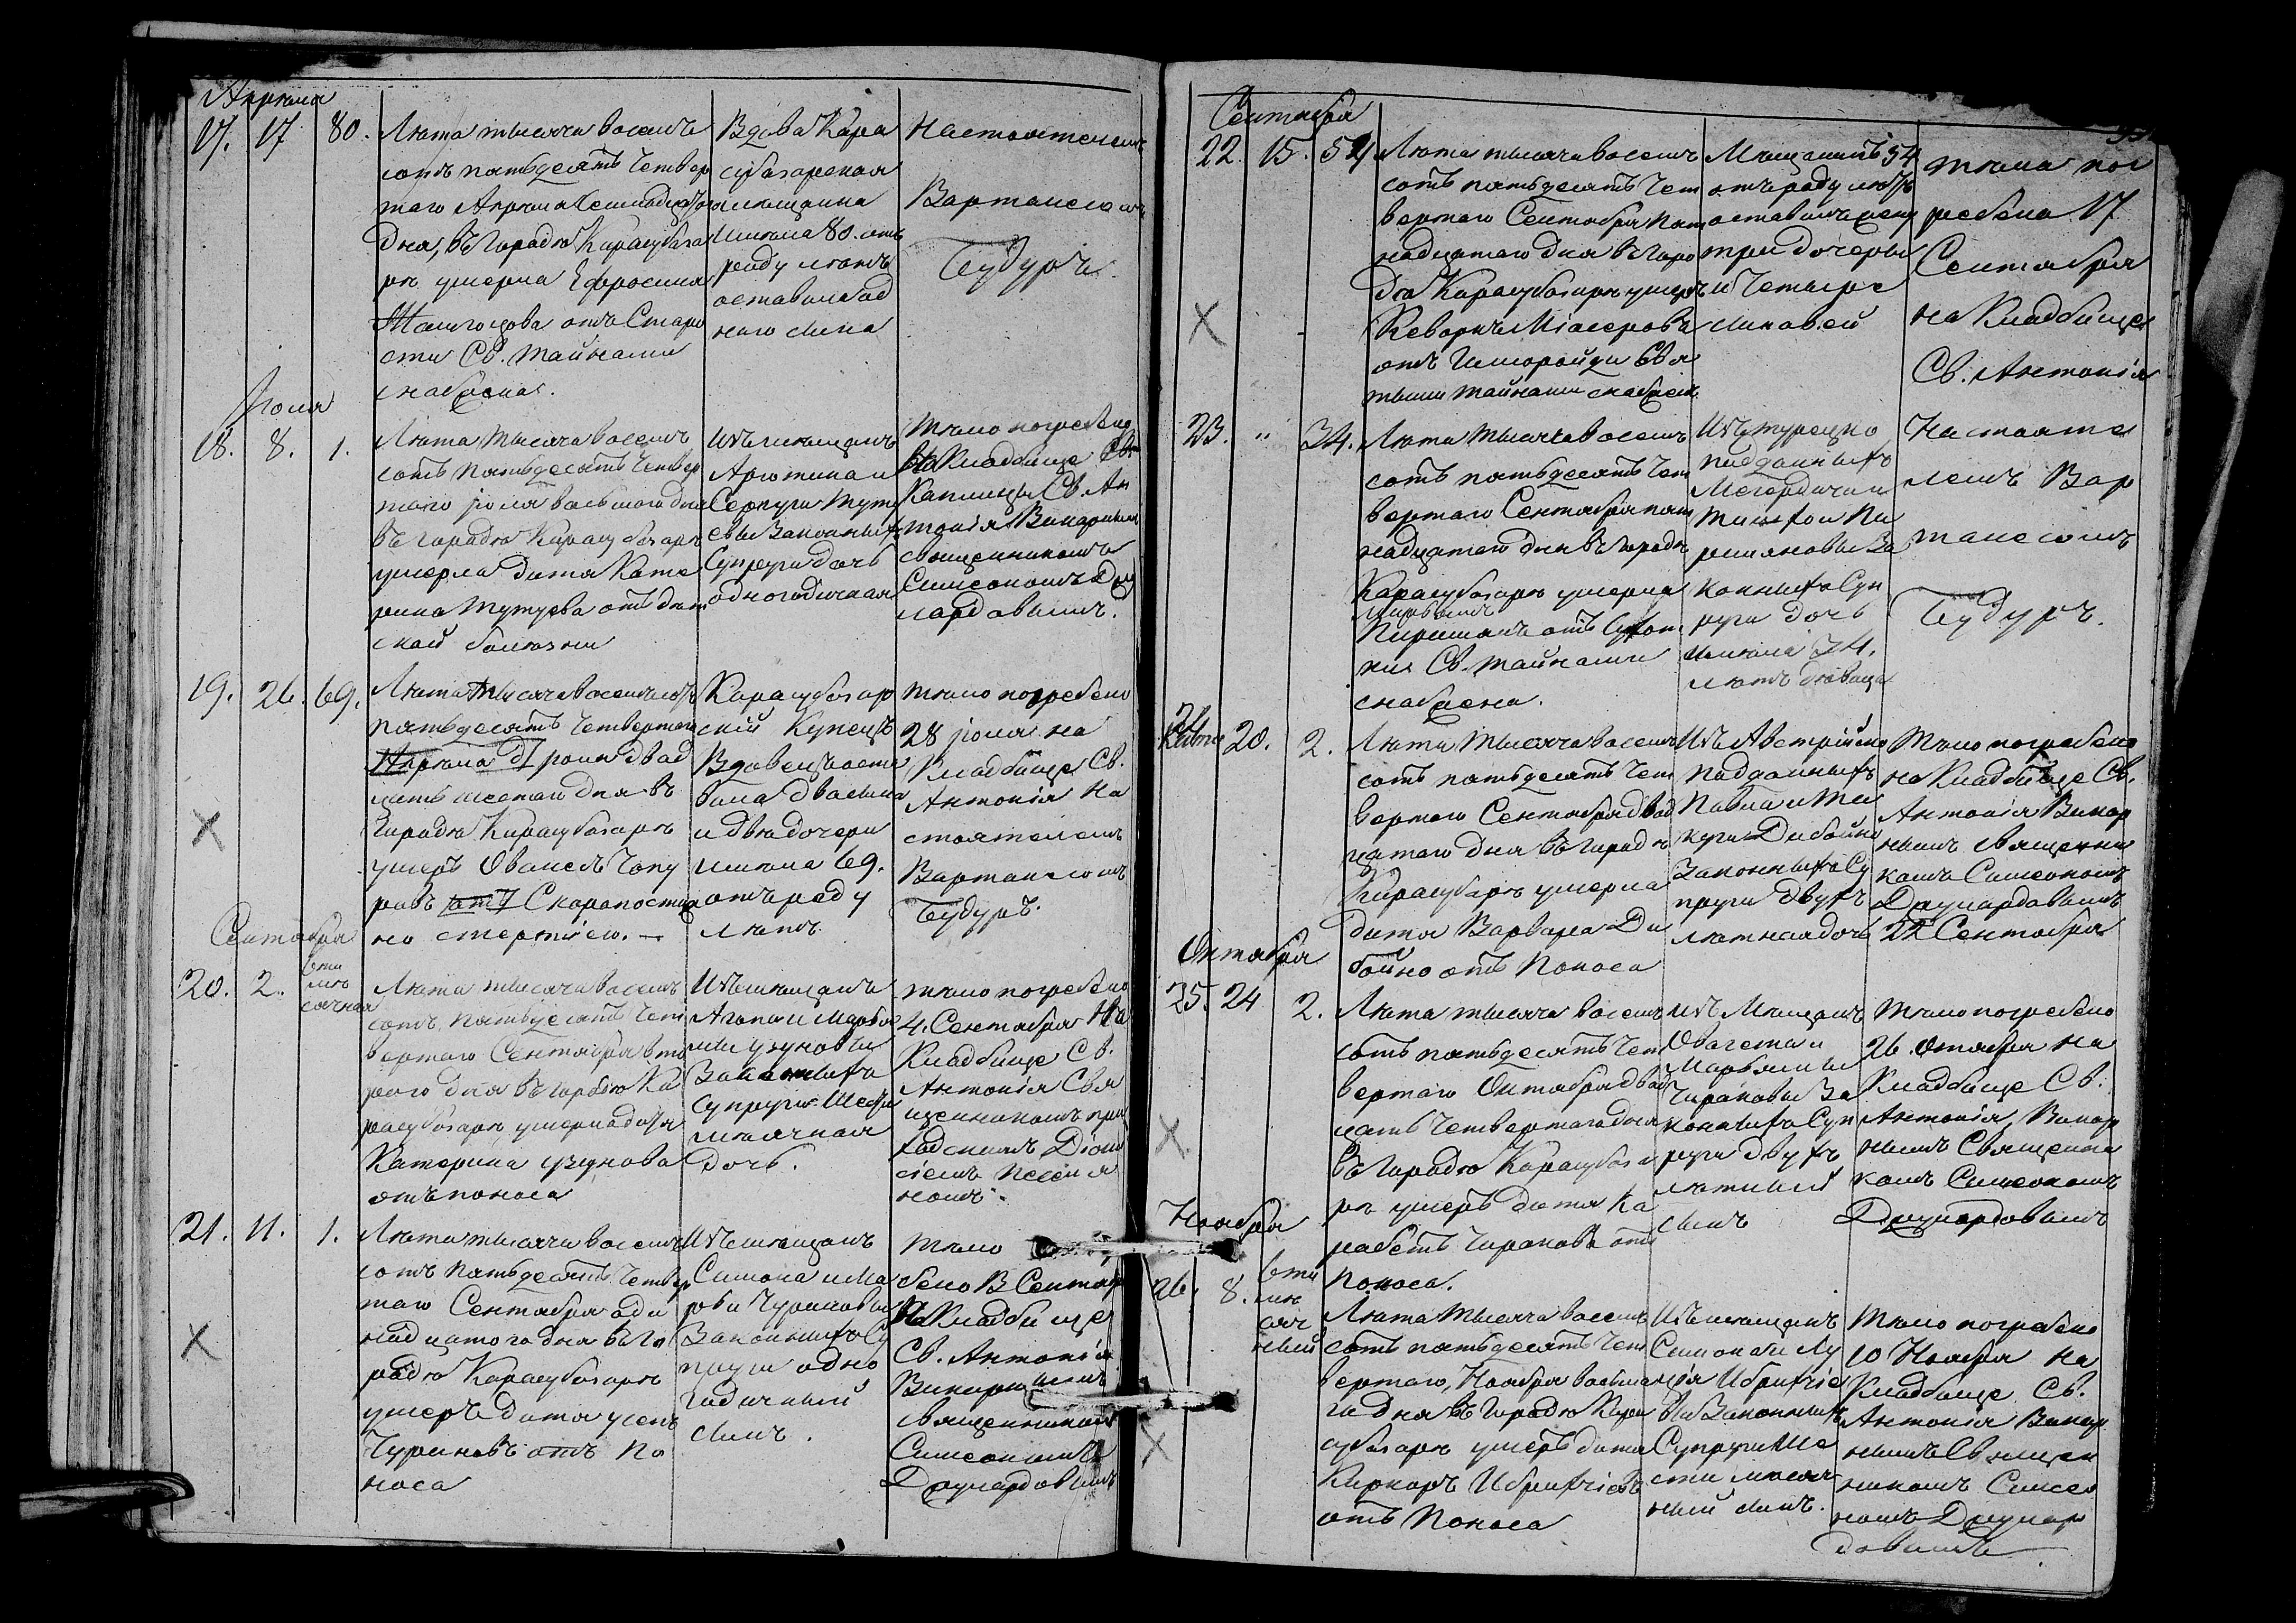 Апрѣля
17. 17 80.
Лѣта тысяча восемь
сотъ пятьдесятъ четвер
таго Апрѣля семнадцатаго
дня, въ городѣ Карасубаза
рѣ умерла Ефросиния
отъ Старо
сти Св. тайнами
снабдена.
Вдова Кара
субазарская
мѣщанка
имѣла 80. отъ
роду лѣтъ
оставила од
наго сына
Настоятелемъ
Вартанесомъ
Іюля
18. 8. 1.
Лѣта тысяча восемь
сотъ пятьдесятъ четвер
таго іюля восьмаго дня
въ городѣ Карасубазарѣ
умерла дитя Кате
рина Тутуева отъ дѣт
ской болѣзни
Изъ мѣщанъ
Арютина и
Серпуги Туту
евы законныхъ
супруги дочь
одногодичная
тѣло погребено
на кладбище
Каплицы Св. Ан
тонія Викарнымъ
священникомъ
Симеономъ
19. 26. 69.
Лѣта тысяча восемь сотъ
пятьдесятъ четвертаго
Апрѣля іюля двад
цать шестаго дня въ
городѣ Карасубазарѣ
умеръ Ованесъ Чопу
ровъ отъ скоропостиж
но смертію.
Карасубазар
скій купецъ
вдовецъ оста
вилъ два сына
и двѣ дочери
имѣла 69.
отъ роду
лѣтъ
тѣло погребено
28 іюля на
кладбище Св.
Антонія На
стоятелемъ
Вартанесомъ
Сентября
20. 2. сти мѣ
сячная
Лѣта тысяча восемь
сотъ пятьдесятъ чет
вертаго Сентября вто
раго дня въ городѣ Ка
расубазарѣ умерла дитя
Катерина Узунова
отъ поноса
Изъ мѣщанъ
Агопа и Марья
мы Узуновы
законныхъ
супруги шести
мѣсячная
дочь.
тѣло погребено
4. Сентября На
кладбище Св.
Антонія Свя
щенникомъ при
ходскимъ Діони
сіемъ
21. 11. 1.
Лѣта тысяча восемь
сотъ пятьдесятъ четвер
таго Сентября оди
надцатаго дня въ го
родѣ Карасубазарѣ
умеръ дитя
Чуриновъ отъ по
носа
Изъ мѣщанъ
Симона и Ма
рьи Чуриновы
законныхъ су
пруги одно
годичный
сынъ.
тѣло
бено 13 Сентяб
На кладбище
Св. Антонія
Викарнымъ
священникомъ
Симеономъ
Сентября
22. 15. 54
Лѣта тысяча восемь
сотъ пятьдесятъ чет
вертаго Сентября пят
надцатаго дня въ горо
дѣ Карасубазарѣ умеръ
Кеворкъ Мiасеровъ
отъ Гемороиди Свя
тыми тайнами снабденъ
Мѣщанинъ 54
отъ роду лѣтъ
оставилъ жену
три дочеры
и четыре
сыновей
тѣла пог
ребено 17
Сентября
на кладбище
Св. Антонія
23. " 34.
Лѣта тысяча восемь
сотъ пятьдесятъ чет
вертаго Сентября пят
надцатаго дня въ городѣ
Карасубазарѣ умерла
отъ сухот
ки Св. тайнами
снабдена.
Изъ турецко
подданныхъ
Мегердича и
законныхъ суп
руги дочь
имѣла 34.
лѣтъ дѣвица
Настояте
лемъ Вар
танесомъ
24
20. 2.
Лѣта тысяча восемь
сотъ пятьдесятъ чет
вертаго Сентября двад
цатаго дня въ городѣ
Карасубазарѣ умерла
дитя Варвара Ди
бойно отъ поноса
Изъ Австрійско
подданныхъ
Павла и
Дибойно
законныхъ су
пруги двухъ
лѣтная дочь
Тѣло погребено
на кладбище Св.
Антонія Викар
нымъ священни
комъ Симеономъ
22 Сентября
Октября
25. 24 2.
Лѣта тысяча восемь
сотъ пятьдесятъ чет
вертаго Октября двад
цать четвертаго дня
въ городѣ Карасубаза
рѣ умеръ дитя Ка
рабетъ Чираковъ отъ
поноса.
Изъ мѣщанъ
Ованеса и
Марьямы
Чираковы за
конныхъ суп
руги двухъ
лѣтный
сынъ
Тѣло погребено
26. Октября на
кладбище Св.
Антонія Викар
нымъ Священни
комъ Симеономъ
Ноября
26. 8. сти
мѣ
сяч
ный
Лѣта тысяча восемь
сотъ пятьдесятъ чет
вертаго, Ноября восьма
го дня въ городѣ Кара
субазарѣ умеръ дитя
Киркоръ Ибрикчіевъ
отъ поноса
Изъ мѣщанъ
Симона и Лу
ція Ибрикчіе
вы законныхъ
супруги ше
сти мѣсяч
ный сынъ.
Тѣло погребено
10 Ноября на
кладбище Св.
Антонія Викар
нымъ Священ
никомъ Симео
номъ